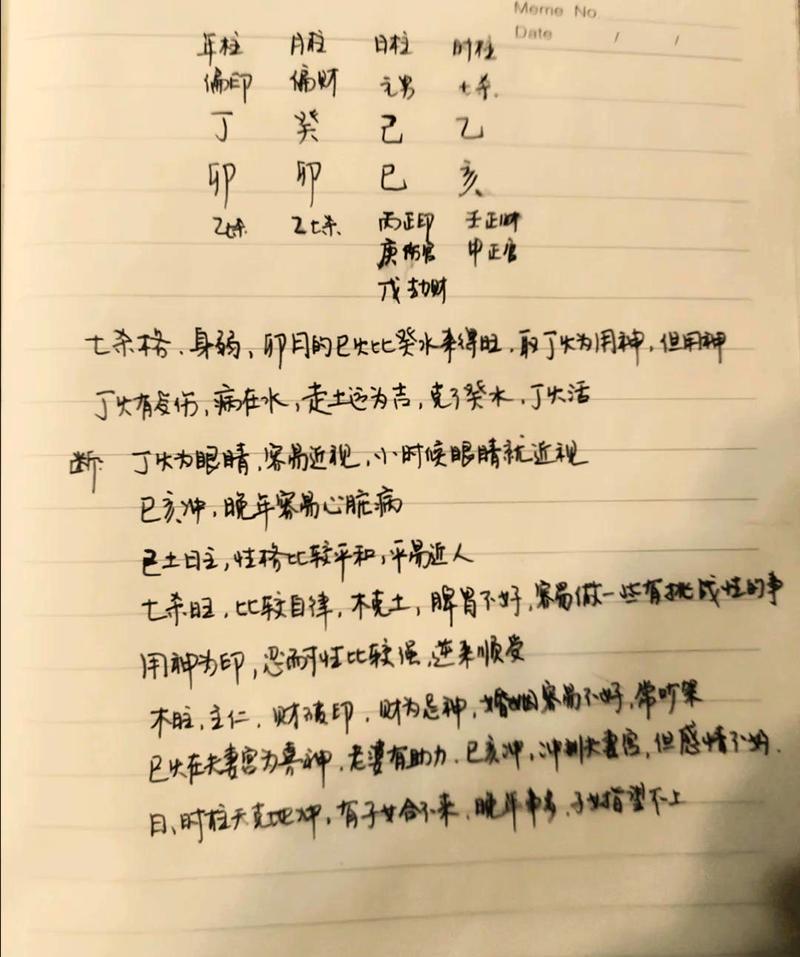 Meme No.
Date / /
年柱 月柱 日柱 时柱
偏印 偏财 元男 七杀
丁 癸 己 乙
卯 卯 巳 亥
乙七杀 乙七杀 丙正印 壬正财
庚伤官 甲正官
戊劫财
七杀格、身弱、卯月的巳火比癸水来得旺，取丁火为用神，但用神
丁火有受伤，病在水，走土运为吉，克了癸水，丁火活
断: 丁火为眼睛，容易近视，小时候眼睛就近视
巳亥冲，晚年容易心脏病
己土日主，性格比较平和，平易近人
七杀旺，比较自律，木克土，脾胃不好，容易做一些有挑战性的事
用神为印，忍耐性比较强，逆来顺受
木旺，主仁，财破印，财为忌神，婚姻容易不好，常吵架
巳火在夫妻宫为喜神，老婆有助力，巳亥冲，冲到夫妻宫，但感情不好.
日、时柱天克地冲，有子女合不来，晚年事多，子女指望不上